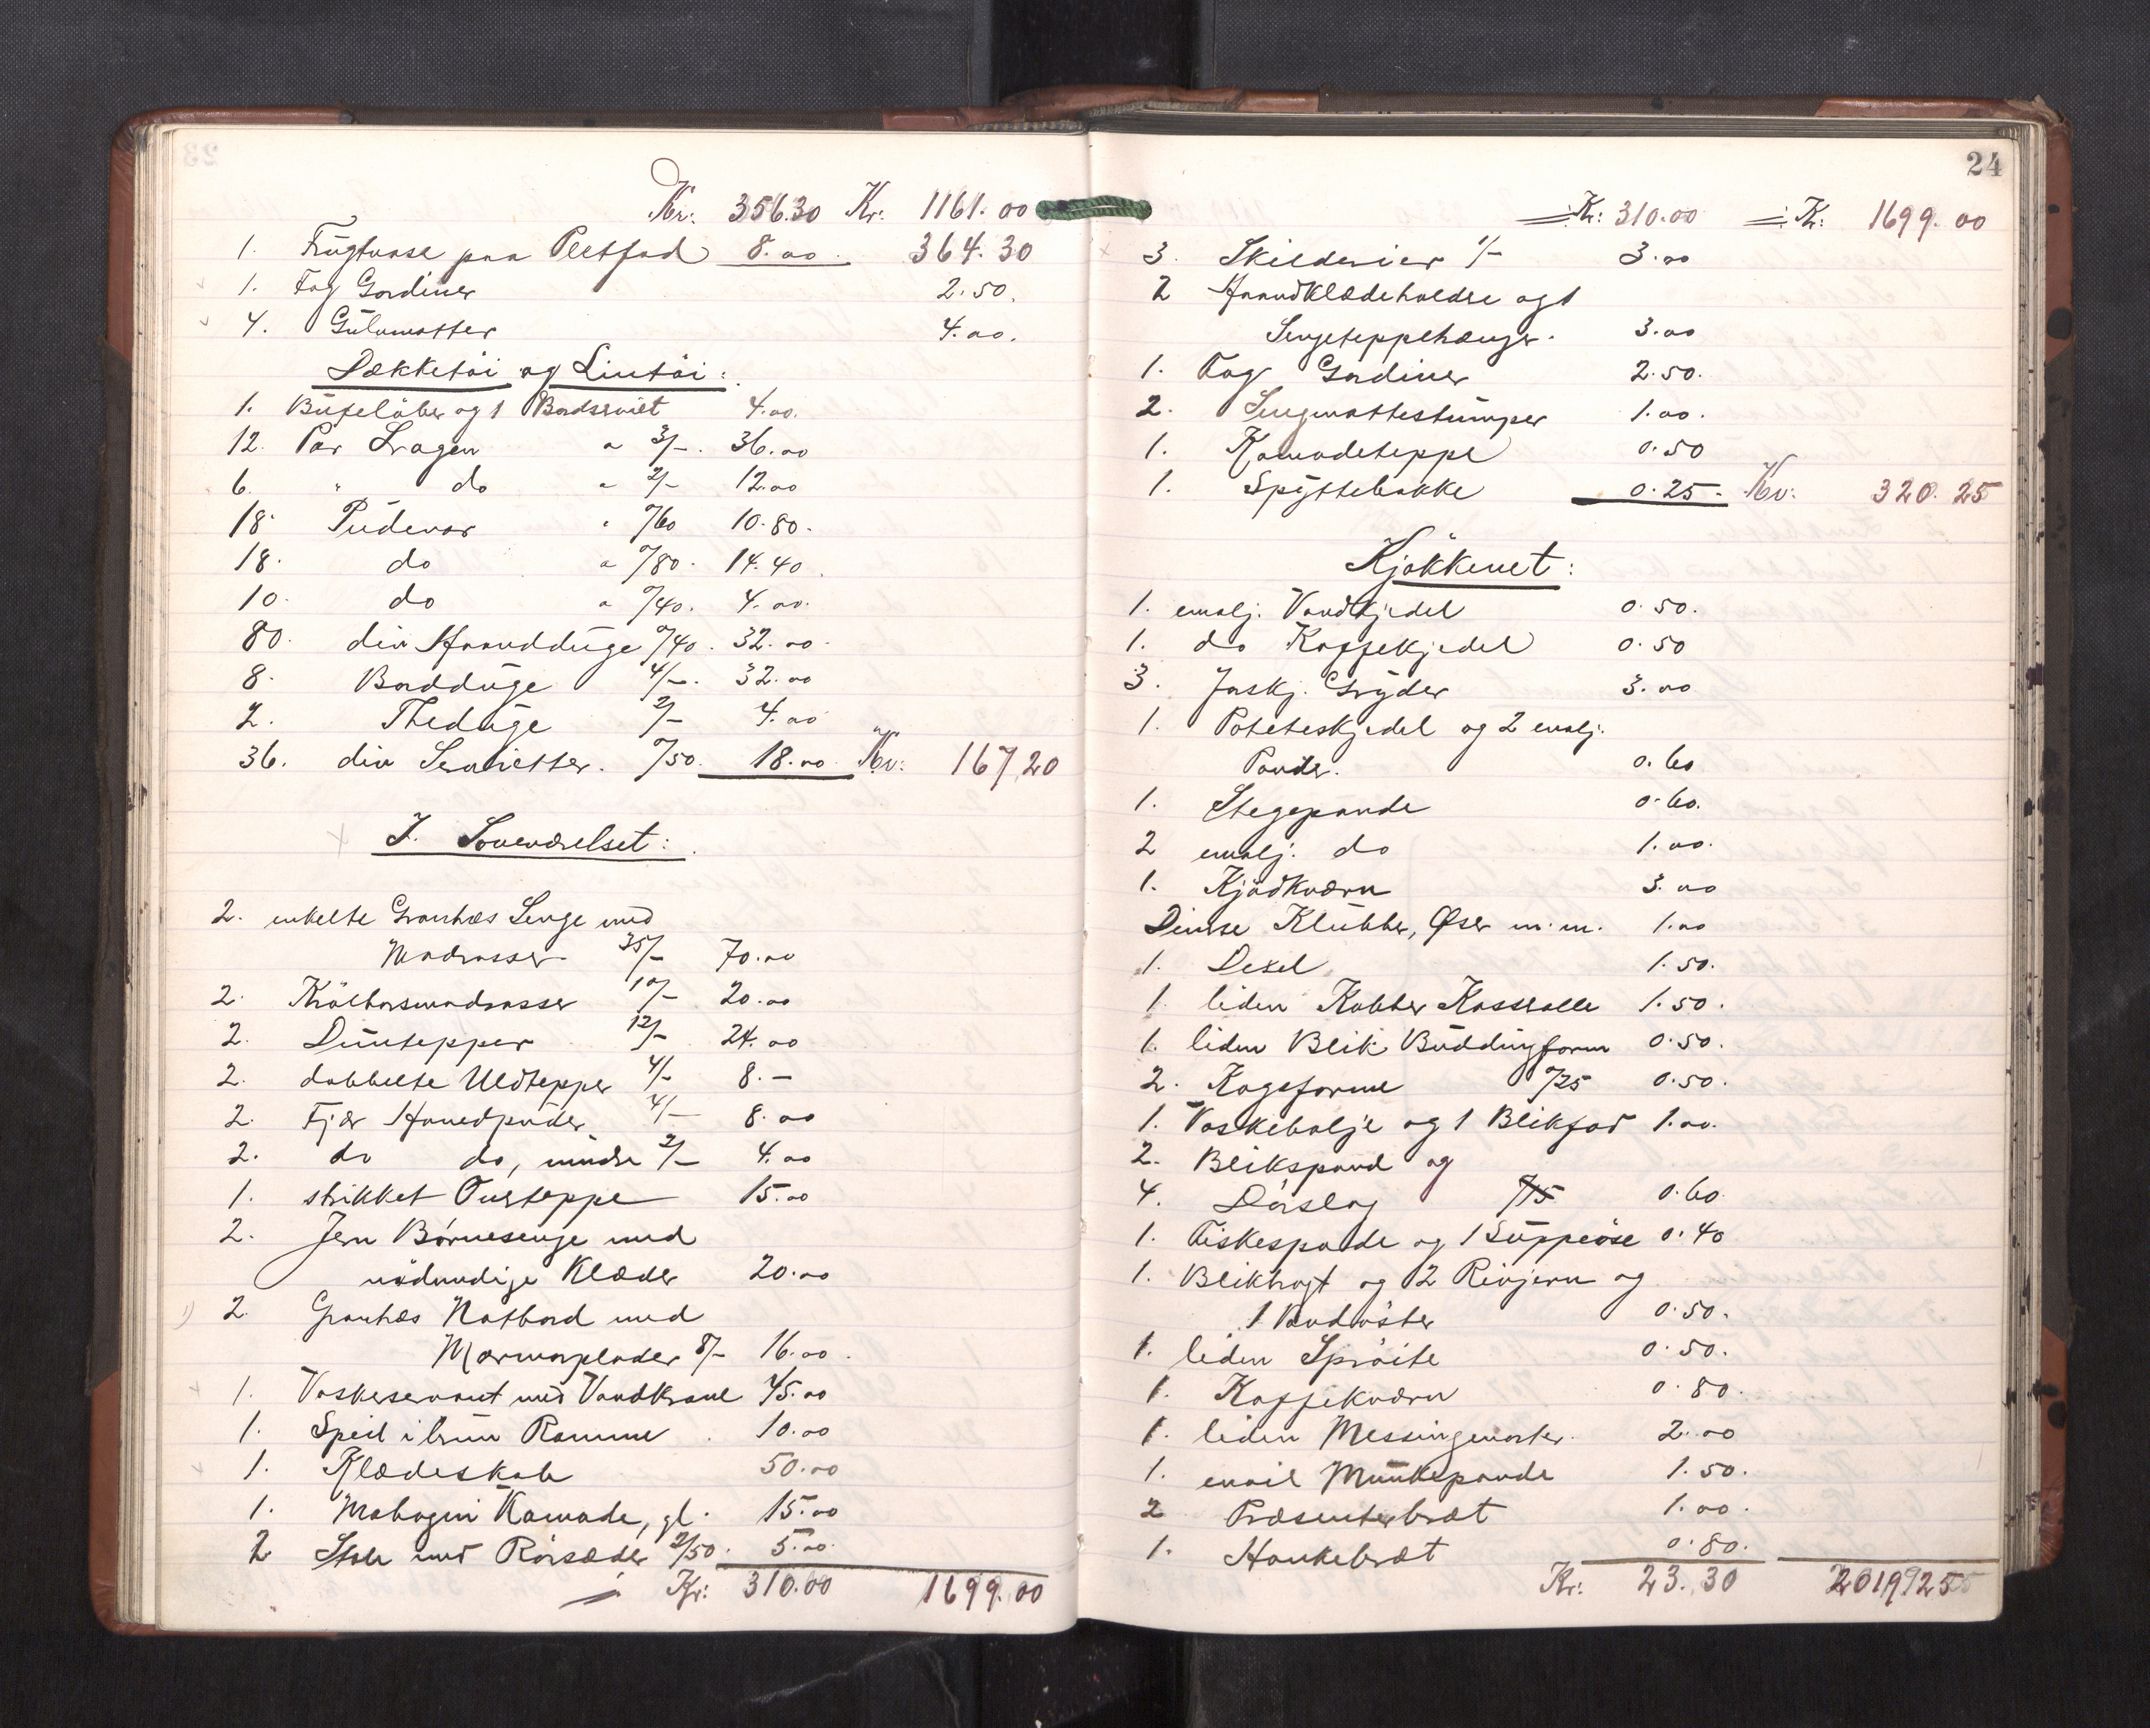 Kr: 356.30 Kr: 1161.00
1. Frugtvase paa Pletfad 8.00. 364.30
1. Fag Gardiner 2.50.
4. Gulvmatter 4.00.
Dækketöi og Lintöi:
1. Bufelöber og 1 Bordserviet 4.00.
12. Par Lragen a 3/-. 36.00
6. " do a 2/- 12.00
18. Pudevar " 0/60 10.80.
18. do a 0/80. 14.40.
10. do a 0/40. 4.00.
80. div Haandduge 0/40. 32.00.
8. Bordduge 4/-. 32.00
2. Theduge 2/- 4.00
36. div Servietter. 0/50. 18.00 Kr: 167,20
I. Soveværelset:
2. enkelte Granhæs Senge med
Madrasser 35/- 70.00
2. Krölhaarsmadrasser 10/- 20.00
2. Duntepper 12/- 24.00
2. dobbelte Uldtepper 4/- 8.-
2. Fjær Hovedpuder 4/- 8.00
2. do do, mindre 2/- 4.00
1. strikket Overteppe 15.00
2. Jern Børnesenge med
nödvendige Klæder 20.00
2. Granhæs Natbord med
Marmorplader 8/- 16.00.
1. Vaskeservant med Vandkrane 45.00
1. Speil i brun Ramme. 10.00
1. Klædeskab 50.00
1. Mahogni Komode, gl. 15.00
2 Stole med Rörsæder 2/50. 5.00.
Kr: 310.00 1699.00
24
Kr: 310.00 Kr: 1699.00
3. Skilderier 1/- 3.00
2 Haandklædeholdre og 1
Sengeteppehænger. 3.00
1. Fag Gardiner 2.50.
2. Sengmattestumper 1.00.
1. Komodeteppe 0.50
1. Spyttebakke 0.25. Kr: 320.25
Kjökkenet:
1. emalj. Vandkjedel 0.50.
1. do Kaffekjedel 0.50
3. Jnskj. Gryder 3.00
1. Poteteskjedel og 2 emalj.
Pander. 0.60
1. Stegepande 0.60.
2 emalj. do 1.00.
1. Kjödkværn 3.00
Diverse Klubber, Øser m.m. 1.00
1. Dexel 1.50.
1. liden Kobber Kasserolle 1.50.
1. liden Blik Buddingform 0.50.
2. Kageforme 0/25 0.50.
1. Vaskebalje og 1 Blikfad 1.00.
2. Blikspand og
4. Dörslag 0/15 0.60
1. Fiskespade og 1 Suppeöse 0.40
1. Bliktragt og 2 Rivjern og
1 Vandöster 0.50.
1. liden Spröite 0.50.
1. Kaffekværn 0.80.
1. liden Messingmorter. 2.00
1. email Munkepande 1.50.
2 Præsenterbræt 1.00.
1. Hankebræt 0.80.
Kr: 23.30 2019,25